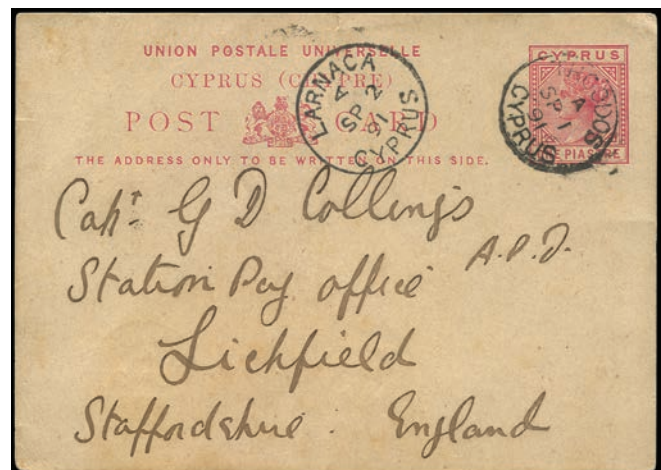 UNION POSTALE UNIVERSELLE
CYPRUS (CHYPRE)
POST CARD
THE ADDRESS ONLY TO BE WRITTEN ON THIS SIDE.
CYPRUS
PIASTRE
LARNACA
A
SP 2
91
CYPRUS
A
SP 1
91
CYPRUS
Capt. G D Collings
A.P.D.
Station Pay office
Lichfield
Staffordshire. England